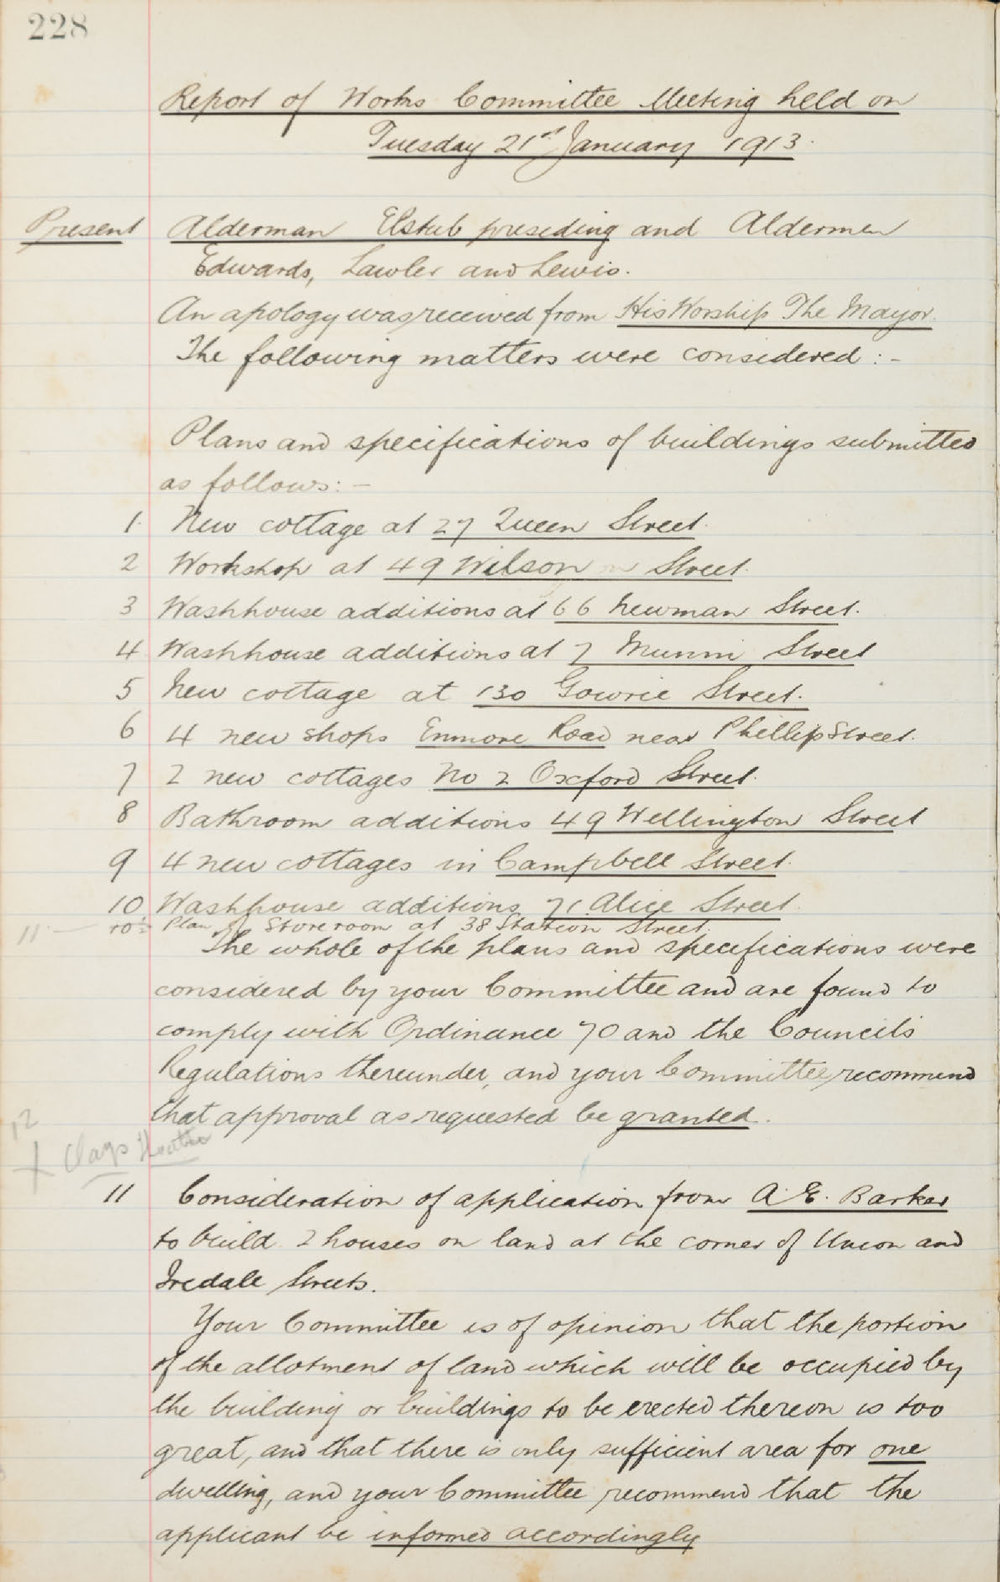 228
Report of Works Committee Meeting held on
Tuesday 21st January 1913.
Present Alderman Elstub presiding and Aldermen
Edwards, Lawler and Lewis.
An apology was received from His Worship The Mayor.
The following matters were considered :-
Plans and specifications of buildings submitted
as follows: -
1. New cottage at 27 Queen Street.
2 Workshop at 49 Wilson Street.
3 Washhouse additions at 66 Newman Street.
4 Washhouse additions at 7 Munni Street
5 New cottage at 130 Gowrie Street.
6 4 new shops Enmore Road near Phillip Street.
7 2 new cottages No 2 Oxford Street.
8 Bathroom additions 49 Wellington Street
9 4 new cottages in Campbell Street.
10 Washhouse additions 71 Alice Street.
11 10½ Plan of Store room at 38 Station Street
The whole of the plans and specifications were
considered by your Committee and are found to
comply with Ordinance 70 and the Councils
Regulations thereunder, and your Committee recommend
that approval as requested be granted.
12
Clays Theatre
11 Consideration of application from A. E. Barker
to build 2 houses on land at the corner of Union and
Iredale Streets.
Your Committee is of opinion that the portion
of the allotment of land which will be occupied by
the building or buildings to be erected thereon is too
great, and that there is only sufficient area for one
dwelling, and your Committee recommend that the
applicant be informed accordingly